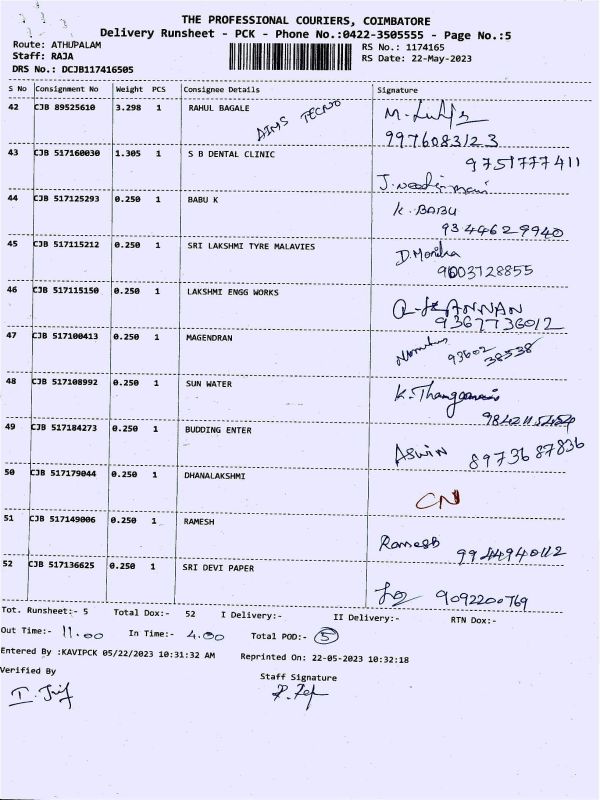 THE PROFESSIONAL COURIERS, COIMBATORE
Delivery Runsheet - PCK - Phone No.:0422-3505555 - Page No.:5
Route: ATHUPALAM
RS No.: 1174165
Staff: RAJA
RS Date: 22-May-2023
DRS No.: DCJB117416505
S No Consignment No Weight PCS Consignee Details Signature
42 CJB 89525610 3.298 1 RAHUL BAGALE
AIMS TECNO
9976083123
43 CJB 517160030 1.305 1 S B DENTAL CLINIC 9751777411
44 CJB 517125293 0.250 1 BABU K K. BABU
9344629940
45 CJB 517115212 0.250 1 SRI LAKSHMI TYRE MALAVIES D. Monika
9003728855
46 CJB 517115150 0.250 1 LAKSHMI ENGG WORKS
9367736012
47 CJB 517100413 0.250 1 MAGENDRAN
93602 38538
48 CJB 517108992 0.250 1 SUN WATER
49 CJB 517184273 0.250 1 BUDDING ENTER
ASWIN 8973687836
50 CJB 517179044 0.250 1 DHANALAKSHMI
CN
51 CJB 517149006 0.250 1 RAMESH
Ramesh 9944940112
52 CJB 517136625 0.250 1 SRI DEVI PAPER
9092200769
Tot. Runsheet:- 5 Total Dox:- 52 I Delivery:- II Delivery:- RTN Dox:-
Out Time:- 11.00 In Time:- 4.00 Total POD:- 5
Entered By :KAVIPCK 05/22/2023 10:31:32 AM Reprinted On: 22-05-2023 10:32:18
Verified By
Staff Signature